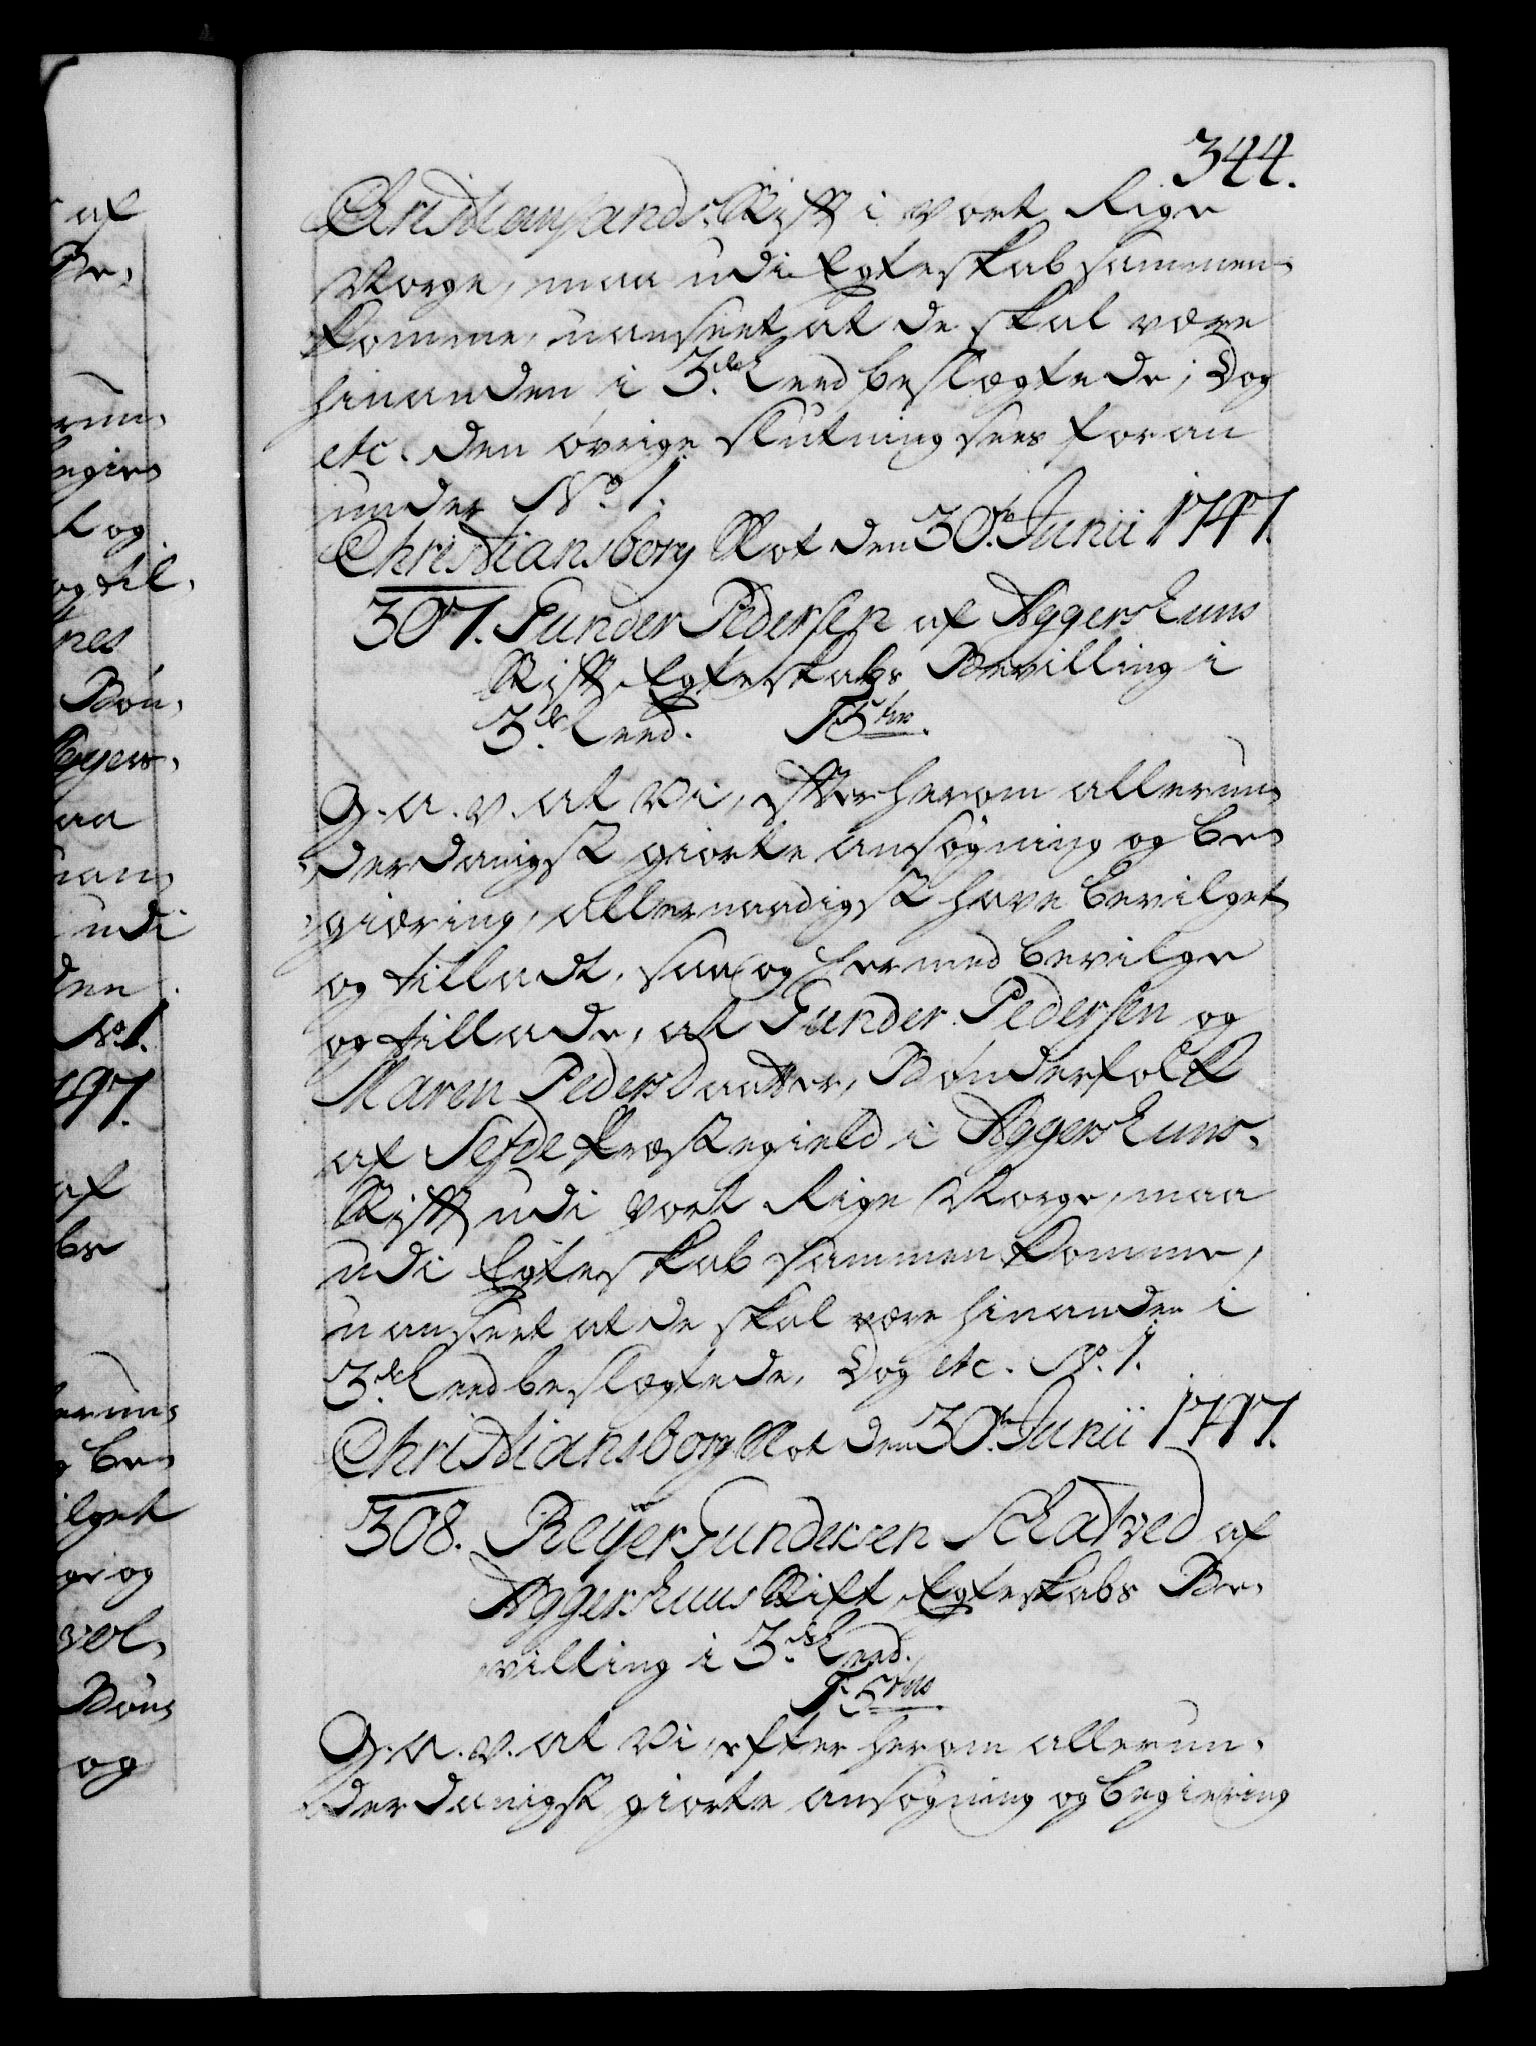 344.
Christiansands Stift i vort Rige
Norge, maa udi Egteskab sammen-
komme, uanseet at de skal være
hinanden i 3.die Leed beslægtede; Dog
etc. den øvrige Slutning sees foran
under No. 1.
Christiansborg Slot den 30.te Junii 1747.
307. Gunder Pedersen af Aggershuus
Stift Egteskabs Bevilling i
3.die Leed.
G. a. v. at Vi, efter herom allerun-
derdanigst giorte ansøgning og be-
giering, allernaadigst have bevilget
og tilladt, saa og hermed bevilge
og tillade, at Gunder Pedersen og
Maren Pedersdaatter, Bønderfolk
af Præstegield i Aggershuus-
Stift udi vort Rige Norge, maa
udi Egteskab sammenkomme,
uanseet at de skal være hinanden i
3.die Leed beslægtede. Dog etc. No. 1.
Christiansborg Slot den 30.te Junii 1747.
308. Reyer Gundersen Schatved af
Aggershuus Stift, Egteskabs Be-
villing i 3.die Leed.
G. a. v. at Vi, efter herom allerun-
derdanigst giorte ansøgning og begiering